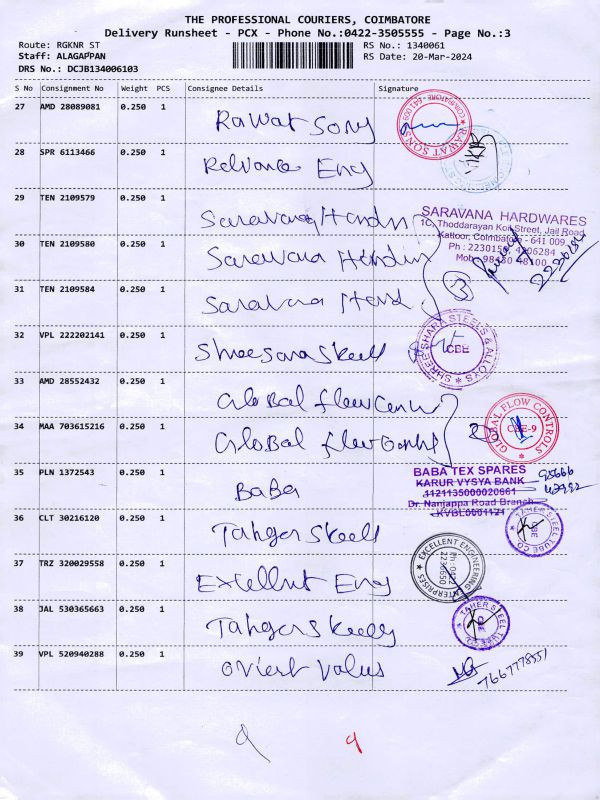 THE PROFESSIONAL COURIERS, COIMBATORE
Delivery Runsheet - PCX - Phone No.:0422-3505555 - Page No.:3
Route: RGKNR ST RS No.: 1340061
Staff: ALAGAPPAN RS Date: 20-Mar-2024
DRS No.: DCJB134006103
S No Consignment No Weight PCS Consignee Details Signature
27 AMD 28089081 0.250 1 Rawat Sons RAWAT SONS COIMBATORE - 641 009
28 SPR 6113466 0.250 1 Reliance Eng
29 TEN 2109579 0.250 1 Saravana
SARAVANA HARDWARES
10, Thoddarayan Koil Street, Jail Road
Kattoor, Coimbatore - 641 009
30 TEN 2109580 0.250 1 Saravana
Ph : 2230159, 4206284
Mob : 98430 48100
31 TEN 2109584 0.250 1 Saravana Hard 3
32 VPL 222202141 0.250 1 SHREE SHARA STEELS & ALLOYS CBE
33 AMD 28552432 0.250 1 Global Flow
34 MAA 703615216 0.250 1 Global Flow GLOBAL FLOW CONTROLS CBE-9
35 PLN 1372543 0.250 1 Baba
BABA TEX SPARES
KARUR VYSYA BANK
1121135000020661
Dr. Nanjappa Road Branch
KVBL0001121
36 CLT 30216120 0.250 1 TAHER STEEL TUBE CO CBE
37 TRZ 320029558 0.250 1 Excellent Eng EXCELLENT ENGINEERING ENTERPRISES Ph : 0422
38 JAL 530365663 0.250 1 TAHER STEEL TUBE CO CBE
39 VPL 520940288 0.250 1 Orient Values 7667778551
9